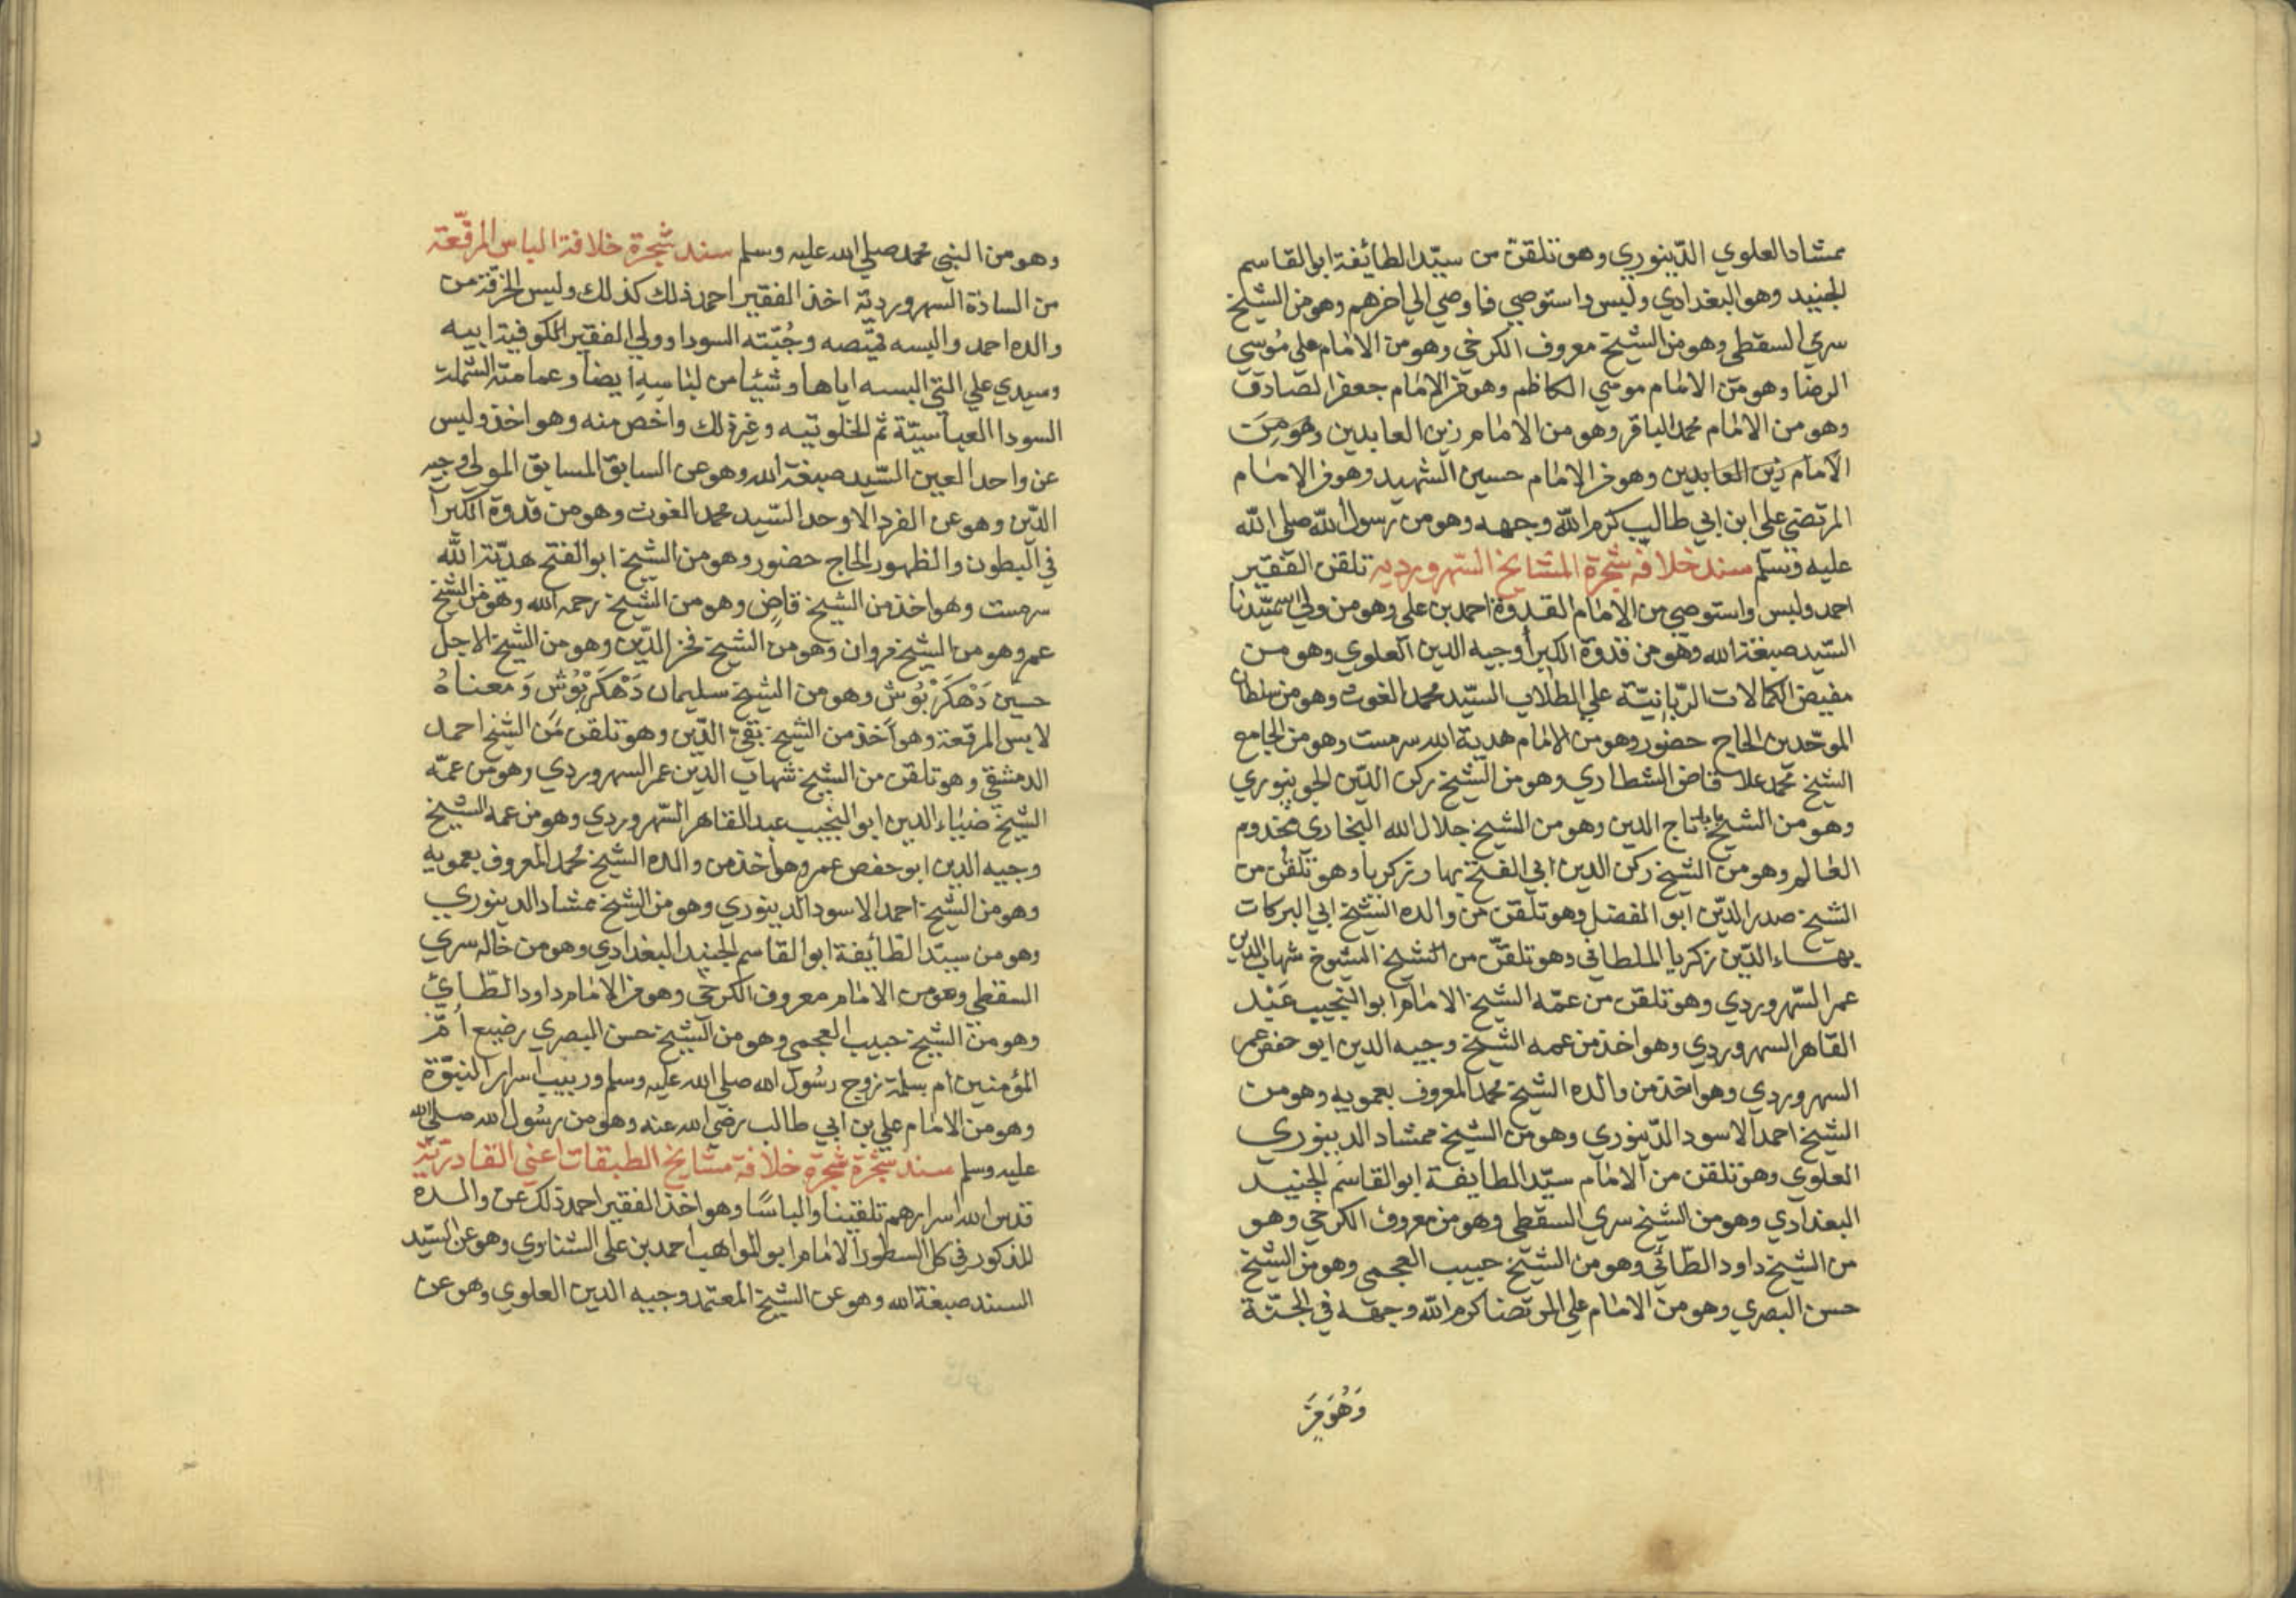 ممشاد العلوي الدّينوري وهو تلقن من سيّد الطائفة ابو القاسم
الجنيد وهو البغدادي ولبس واستوصي فاوصي الي اخرهم وهو من الشيخ
سري السقطي وهو من الشيخ معروف الكرخي وهو من الامام علي موسي
الرضا وهو من الامام موسي الكاظم وهو من الامام جعفر الصادق
وهو من الامام محمد الباقر وهو من الامام زين العابدين وهو من
الامام زين العابدين وهو من الامام حسين الشهيد وهو من الامام
المرتضي علي ابن ابي طالب كرم الله وجهه وهو من رسول الله صلي الله
عليه وسلم سند خلافه شجرة المشايخ السهرورديه تلقن الفقير
احمد ولبس واستوصي من الامام القدوة احمد بن علي وهو من ولي الله سيّدنا
السّيد صبغة الله وهو من قدوة الكبرأ وجيه الدين العلوي وهو من
مفيض الكمالات الرّبانيّة علي الطلاب السيّد محمد الغوث وهو من سلطان
الموحّدين الحاج حضور وهو من الامام هدية الله سرمست وهو من الجامع
الشيخ محمد علا قاض الشطاري وهو من الشيخ ركن الدّين الجونپوري
وهو من الشيخ بابا تاج الدين وهو من الشيخ جلال الله البخاري مخدوم
العالم وهو من الشيخ ركن الدين ابي الفتح بهاء زكريا وهو تلقن من
الشيخ صدر الدّين ابو الفضل وهو تلقن من والده الشيخ ابي البركات
بهاء الدّين زكريا الملطاني وهو تلقّن من الشيخ الشيوخ شهاب الدين
عمر السّهروردي وهو تلقن من عمّه الشيخ الامام ابو النجيب عبد
القاهر السهروردي وهو اخذ من عمه الشيخ وجيه الدين ابو حفص عمر
السهروردي وهو اخذ من والده الشيخ محمد المعروف بعمويه وهو من
الشيخ احمد الاسود الدّينوري وهو من الشيخ ممشاد الدينوري
العلوي وهو تلقن من الامام سيّد الطايفة ابو القاسم الجنيد
البغدادي وهو من الشيخ سري السقطي وهو من معروف الكرخي وهو
من الشيخ داود الطّائي وهو من الشيخ حبيب العجمي وهو من الشيخ
حسن البصري وهو من الامام علي المرتضا كرم الله وجهه في الجنّة
وَهُوَ مِنَ
وهو من النبي محمد صلي الله عليه وسلم سند شجرة خلافة الباس المرقّعة
من السادة السهرورديّة اخذ الفقير احمد ذلك كذلك ولبس الخرقة من
والده احمد والبسه قميّصه وجُبّته السودا وولي الفقير الكوفية ابيه
وسيدي علي التي البسه اياها وشيئا من لباسه ايضا وعمامته الشملة
السودا العباسيّة ثم الخلوتيه وغير ذلك واخص منه وهو اخذ ولبس
عن واحد العين السّيد صبغة الله وهو عن السابق المسابق المولي وجيه
الدّين وهو عن الفرد الاوحد السّيد محمد الغوث وهو من قدوة الكبرأ
في البطون والظهور الحاج حضور وهو من الشيخ ابو الفتح هديّة الله
سرمست وهو اخذ من الشيخ قاضٍ وهو من الشيخ رحمه الله وهو من الشيخ
عمر وهو من الشيخ مروان وهو من الشيخ فخر الدّين وهو من الشيخ الاجل
حسين دَهْكَرْ بُوْش وهو من الشيخ سليمان دَهْكَرْبُوْش وَمعناهُ
لابس المرقّعة وهو أخذ من الشيخ تقيّ الدّين وهو تلقن من الشيخ احمد
الدمشقي وهو تلقن من الشيخ شهاب الدّين عمر السهروردي وهو من عمّه
الشيخ ضياء الدين ابو النجيب عبد القاهر السّهروردي وهو من عمه الشيخ
وجيه الدين ابو حفص عمر وهو اخذ من والده الشيخ محمد المعروف بعمويه
وهو من الشيخ احمد الاسود الدينوري وهو من الشيخ ممشاد الدينوري
وهو من سيّد الطّايفة ابو القاسم الجنيد البغدادي وهو من خاله سري
السقطي وهو من الامام معروف الكرخي وهو من الامام داود الطّائي
وهو من الشيخ حبيب العجمي وهو من الشيخ حسن البصري رضيع أمّ
المؤمنين ام سلمة زوج رسُول الله صلي الله عليه وسلم وربيب اسرار النبوّة
وهو من الامام علي بن ابي طالب رضي الله عنه وهو من رسُول الله صلي الله
عليه وسلم سند شجرة شجرة خلافة مشايخ الطبقات اعني القادريّة
قدس الله اسرارهم تلقينا والباسًا وهو اخذ الفقير احمد ذلك عن والده
المذكور في كل السطور الامام ابو المواهب احمد بن علي الشناوي وهو عن السّيد
السند صبغة الله وهو عن الشيخ المعتمد وجيه الدين العلوي وهو عن